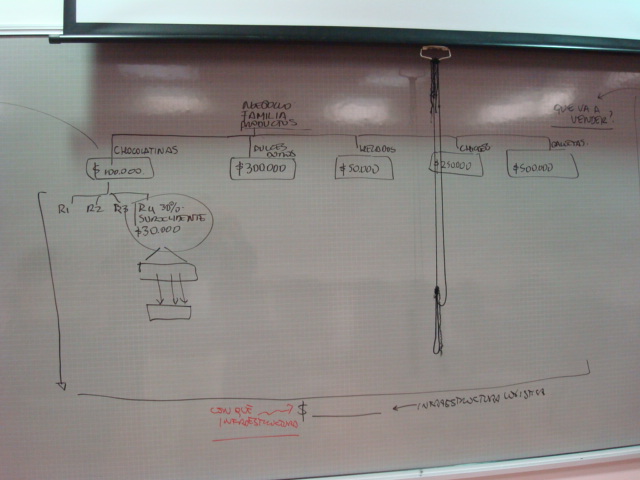 NEGOCIO
FAMILIA
PRODUCTOS
QUE VA A
VENDER?
CHOCOLATINAS
DULCES
HELADOS
CHICLES
GALLETAS
$ 100.000
$300.000
$50.000
$250.000
$500.000
R1 R2 R3 R4 30%
SUROCCIDENTE
$30.000
CON QUÉ
INFRAESTRUCTURA
$
INFRAESTRUCTURA LOGISTICA